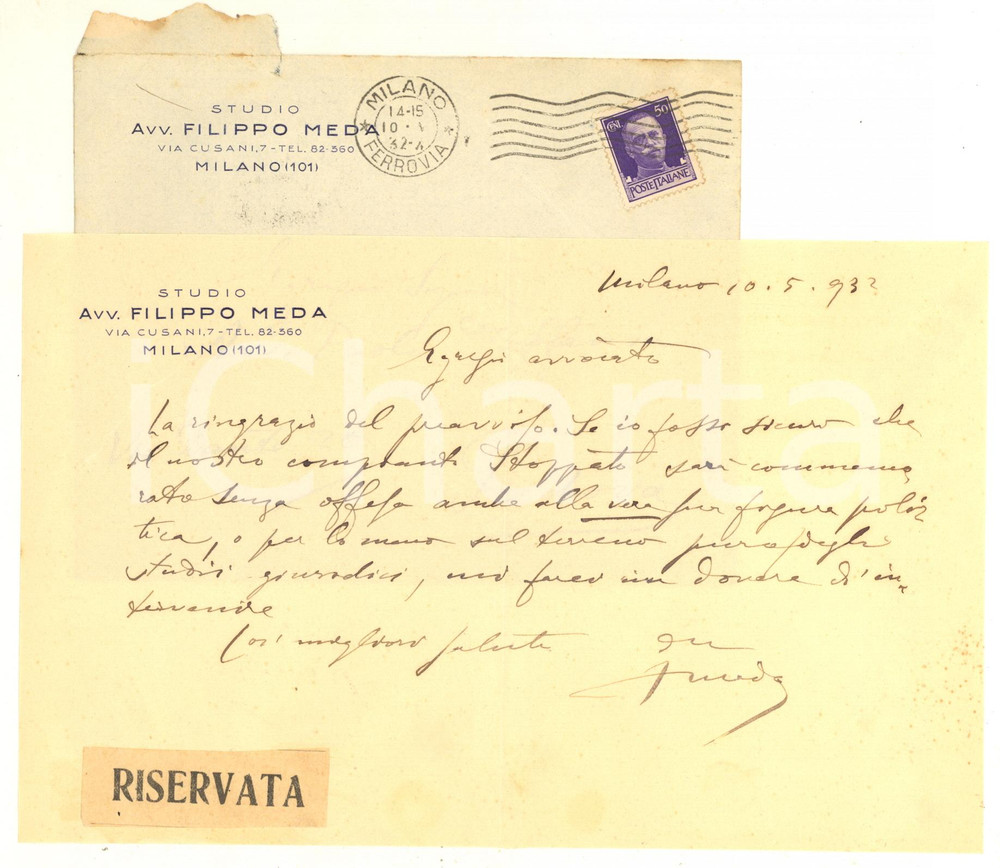 STUDIO
AVV. FILIPPO MEDA
VIA CUSANI, 7 - TEL. 82-360
MILANO (101)
MILANO
14-15
10 · V
32-
FERROVIA
CENT. 50
POSTE ITALIANE
Milano 10. 5. 932
STUDIO
AVV. FILIPPO MEDA
VIA CUSANI, 7 - TEL. 82-360
MILANO (101)
iCharta
Egregio avvocato
La ringrazio del preavviso. Se io fossi sicuro che
il nostro compianto Stoppato sarà commemo
rato senza offesa anche alla vera sua figura polí-
tica, o per lo meno sul terreno puro degli
studii giuridici, mi farei un dovere d'in-
tervenire
Coi migliori saluti
FMeda
RISERVATA